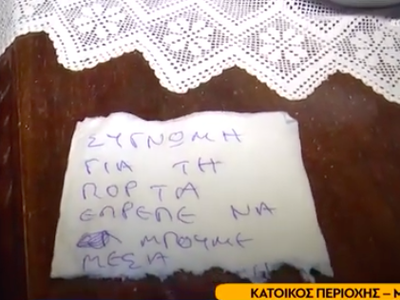 ΣΥΓΝΩΜΗ
ΓΙΑ ΤΗ
ΠΟΡΤΑ
ΕΠΡΕΠΕ ΝΑ
ΜΠΟΥΜΕ
ΜΕΣΑ
ΚΑΤΟΙΚΟΣ ΠΕΡΙΟΧΗΣ –